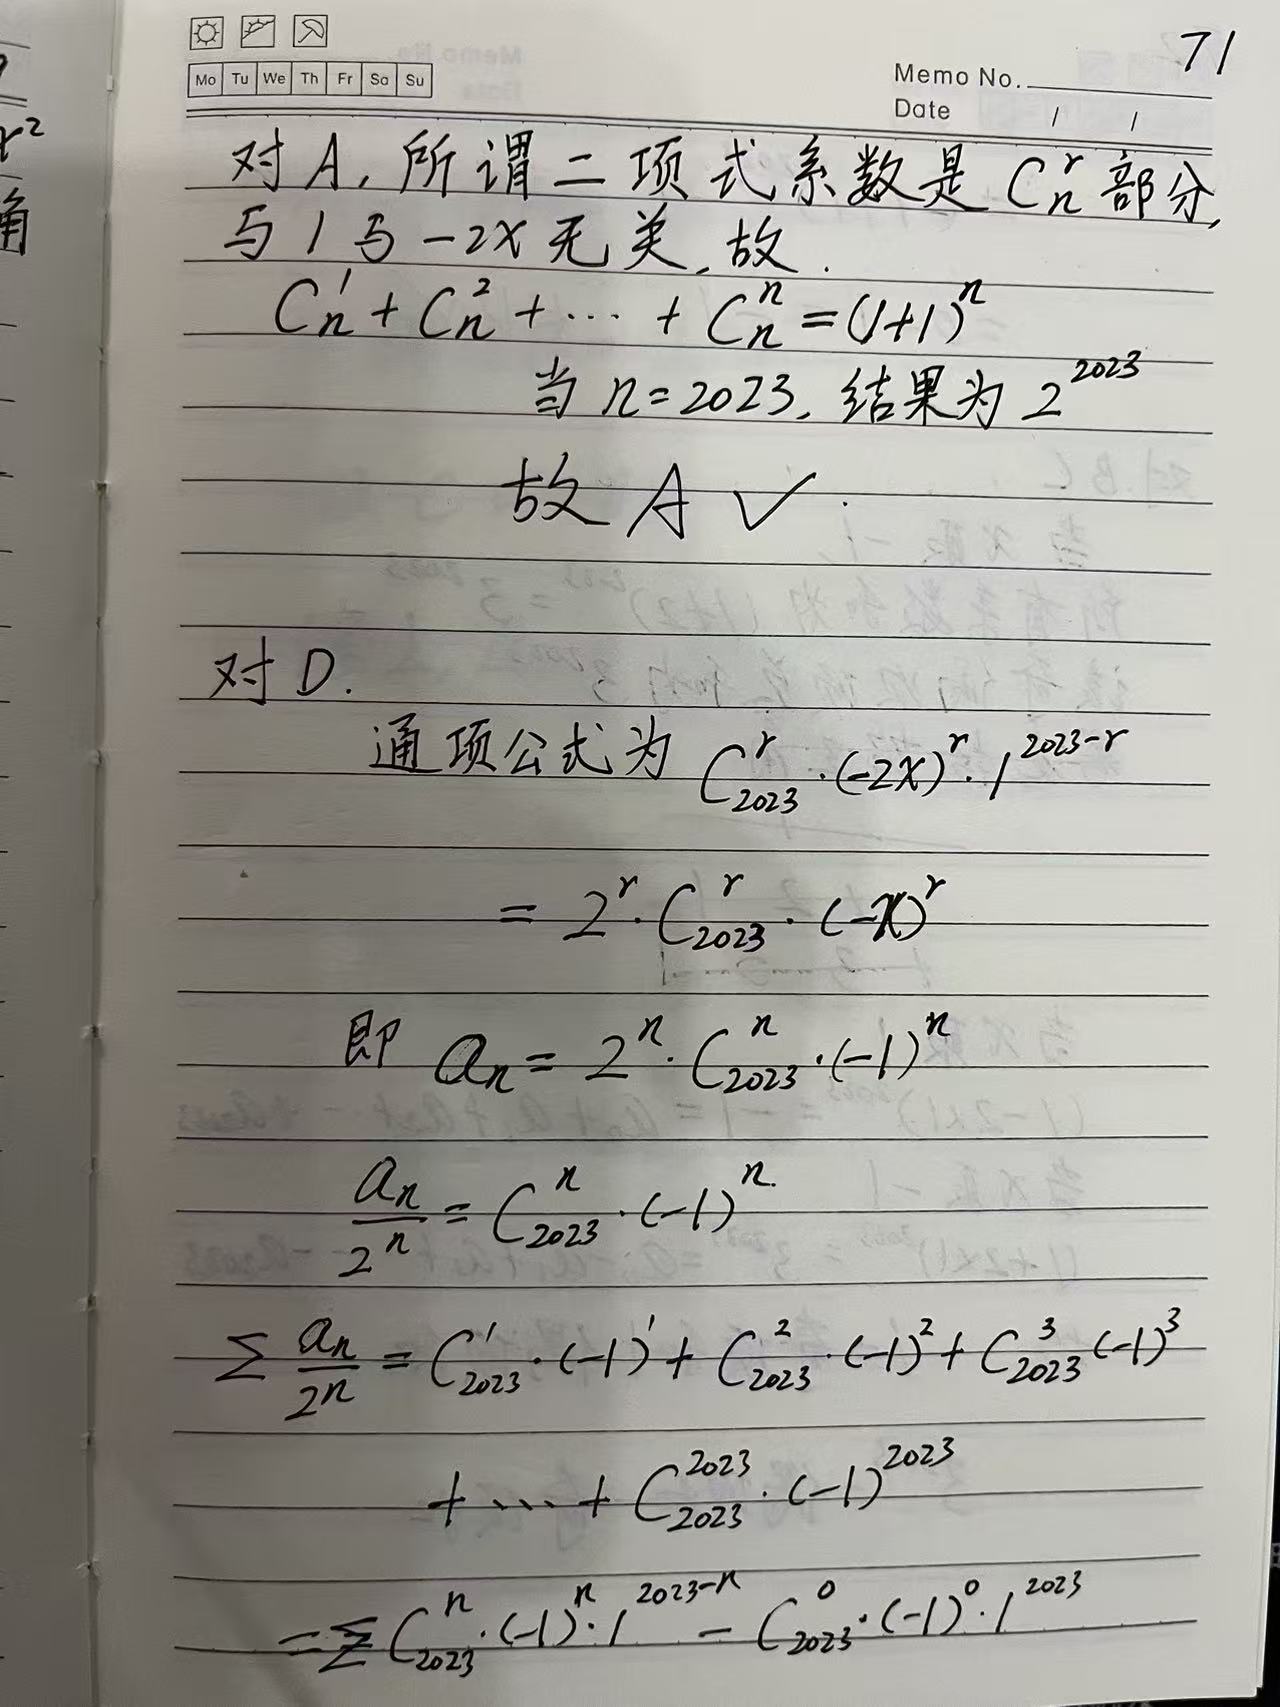 71
Mo Tu We Th Fr Sa Su
Memo No.
Date / /
对A,所谓二项式系数是 C_n^r 部分,
与1与-2x无关,故.
C_n^1 + C_n^2 + ⋯ + C_n^n = (1+1)^n
当 n=2023, 结果为 2^2023
故 A ✓.
对 D.
通项公式为 C_2023^r · (-2x)^r · 1^(2023-r)
= 2^r · C_2023^r · (-x)^r
即 a_n = 2^n · C_2023^n · (-1)^n
a_n/2^n = C_2023^n · (-1)^n.
Σ a_n/2^n = C_2023^1 · (-1)^1 + C_2023^2 · (-1)^2 + C_2023^3 (-1)^3
+ ⋯ + C_2023^2023 · (-1)^2023
= Σ C_2023^n · (-1)^n · 1^(2023-n) - C_2023^0 · (-1)^0 · 1^2023
r^2
角